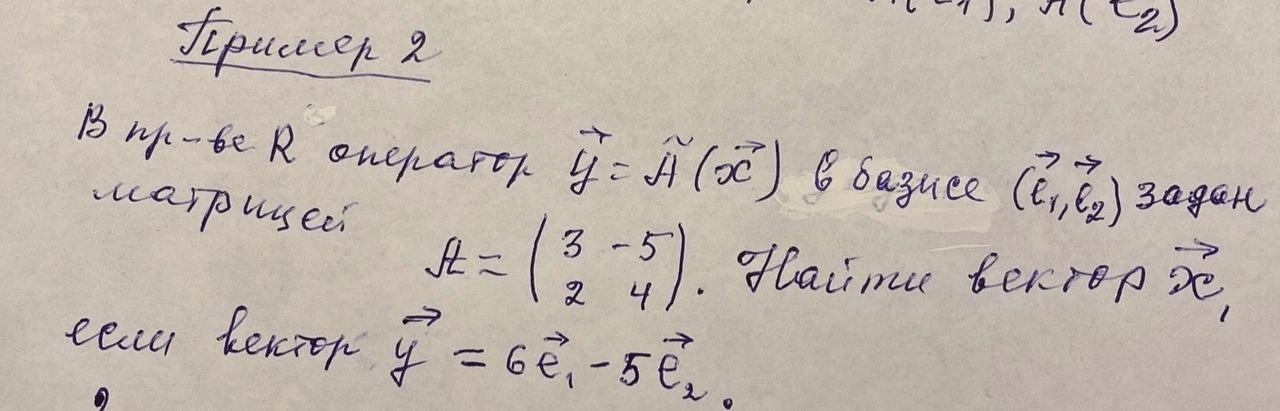 A(e₂)
Пример 2
В пр-ве R оператор y⃗ = Ã(x⃗) в базисе (e⃗₁, e⃗₂) задан
матрицей
A = ( 3 -5
2 4 ). Найти вектор x⃗,
если вектор y⃗ = 6e⃗₁ - 5e⃗₂.